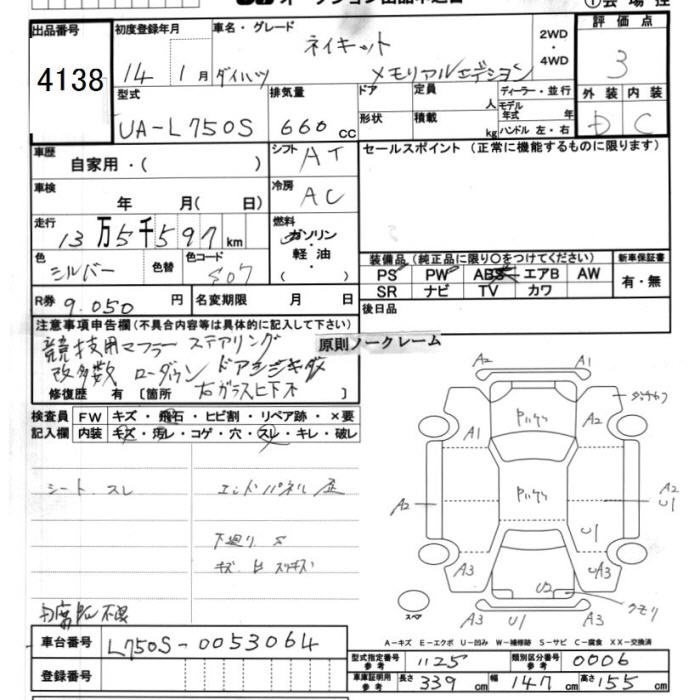 出品番号 初度登録年月 車名・グレード 2WD・4WD 評価点
4138 14年 1月 ダイハツ ネイキッド メモリアルエディション 3
型式 排気量 ドア 定員 人 ディーラー・並行 外装 内装
UA-L750S 660cc 形状 積載 kg モデル年式 年 ハンドル 左・右 D C
車歴 自家用・( ) シフト AT セールスポイント(正常に機能するものに限ります)
車検 年 月( 日) 冷房 AC
走行 13万5千597km 燃料 ガソリン・軽油・( )
色 シルバー 色替 色コード S07 装備品(純正品に限り○をつけてください) 新車保証書
PS PW ABS エアB AW 有・無
SR ナビ TV カワ
R券 9.050円 名変期限 月 日 後日品
注意事項申告欄(不具合内容等は具体的に記入して下さい) 原則ノークレーム
競技用マフラー ステアリング
改多数 ローダウン
修復歴 有 [箇所 右ガラス
検査員 FW キズ・飛石・ヒビ割・リペア跡・×要
記入欄 内装 キズ・汚レ・コゲ・穴・スレ・キレ・破レ
シート スレ エンドパネル
下廻り S
キズ
A2 A1
A1 A2
A2 A2 U1
U1
A3 U2 UA3
スペア U1 クモリ
A-キズ E-エクボ U-凹み W-補修跡 S-サビ C-腐食 XX-交換済
車台番号 L750S-0053064 型式指定番号 参考 1125 類別区分番号 参考 0006
登録番号 車庫証明用 参考 長さ 339cm 幅 147cm 高さ 155cm